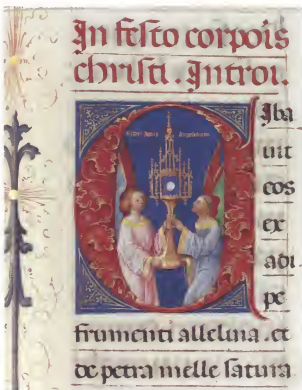 In festo corpois
christi. Introi.
Cibavit
eos
ex
adi
pe
frumenti alleluia . et
de petra melle satura